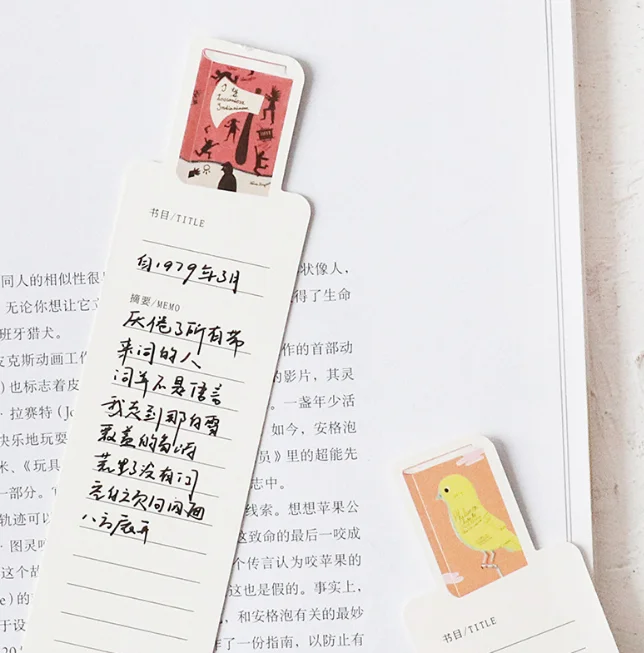 书目/TITLE
自1979年3月
摘要/MEMO
厌倦了所有带
来词的人
词并不是语言
我走到那白雪
覆盖的岛屿
荒野没有词
空白之页向四面
八方展开
书目/TITLE
同人的相似性很 状像人，
无论你想让它立 得了生命
班牙猎犬。
皮克斯动画工作 作的首部动
）也标志着皮 的影片，其灵
·拉赛特（Jo 一盏年少活
快乐地玩耍 如今，安格泡
米、《玩具 员》里的超能先
一部分。 志中。
轨迹可以 线索。想想苹果公
·图灵 这致命的最后一咬成
这个故 个传言认为咬苹果的
e）的 这也是假的。事实上，
于设 和安格泡有关的最妙
20 作了一份指南，以防止有